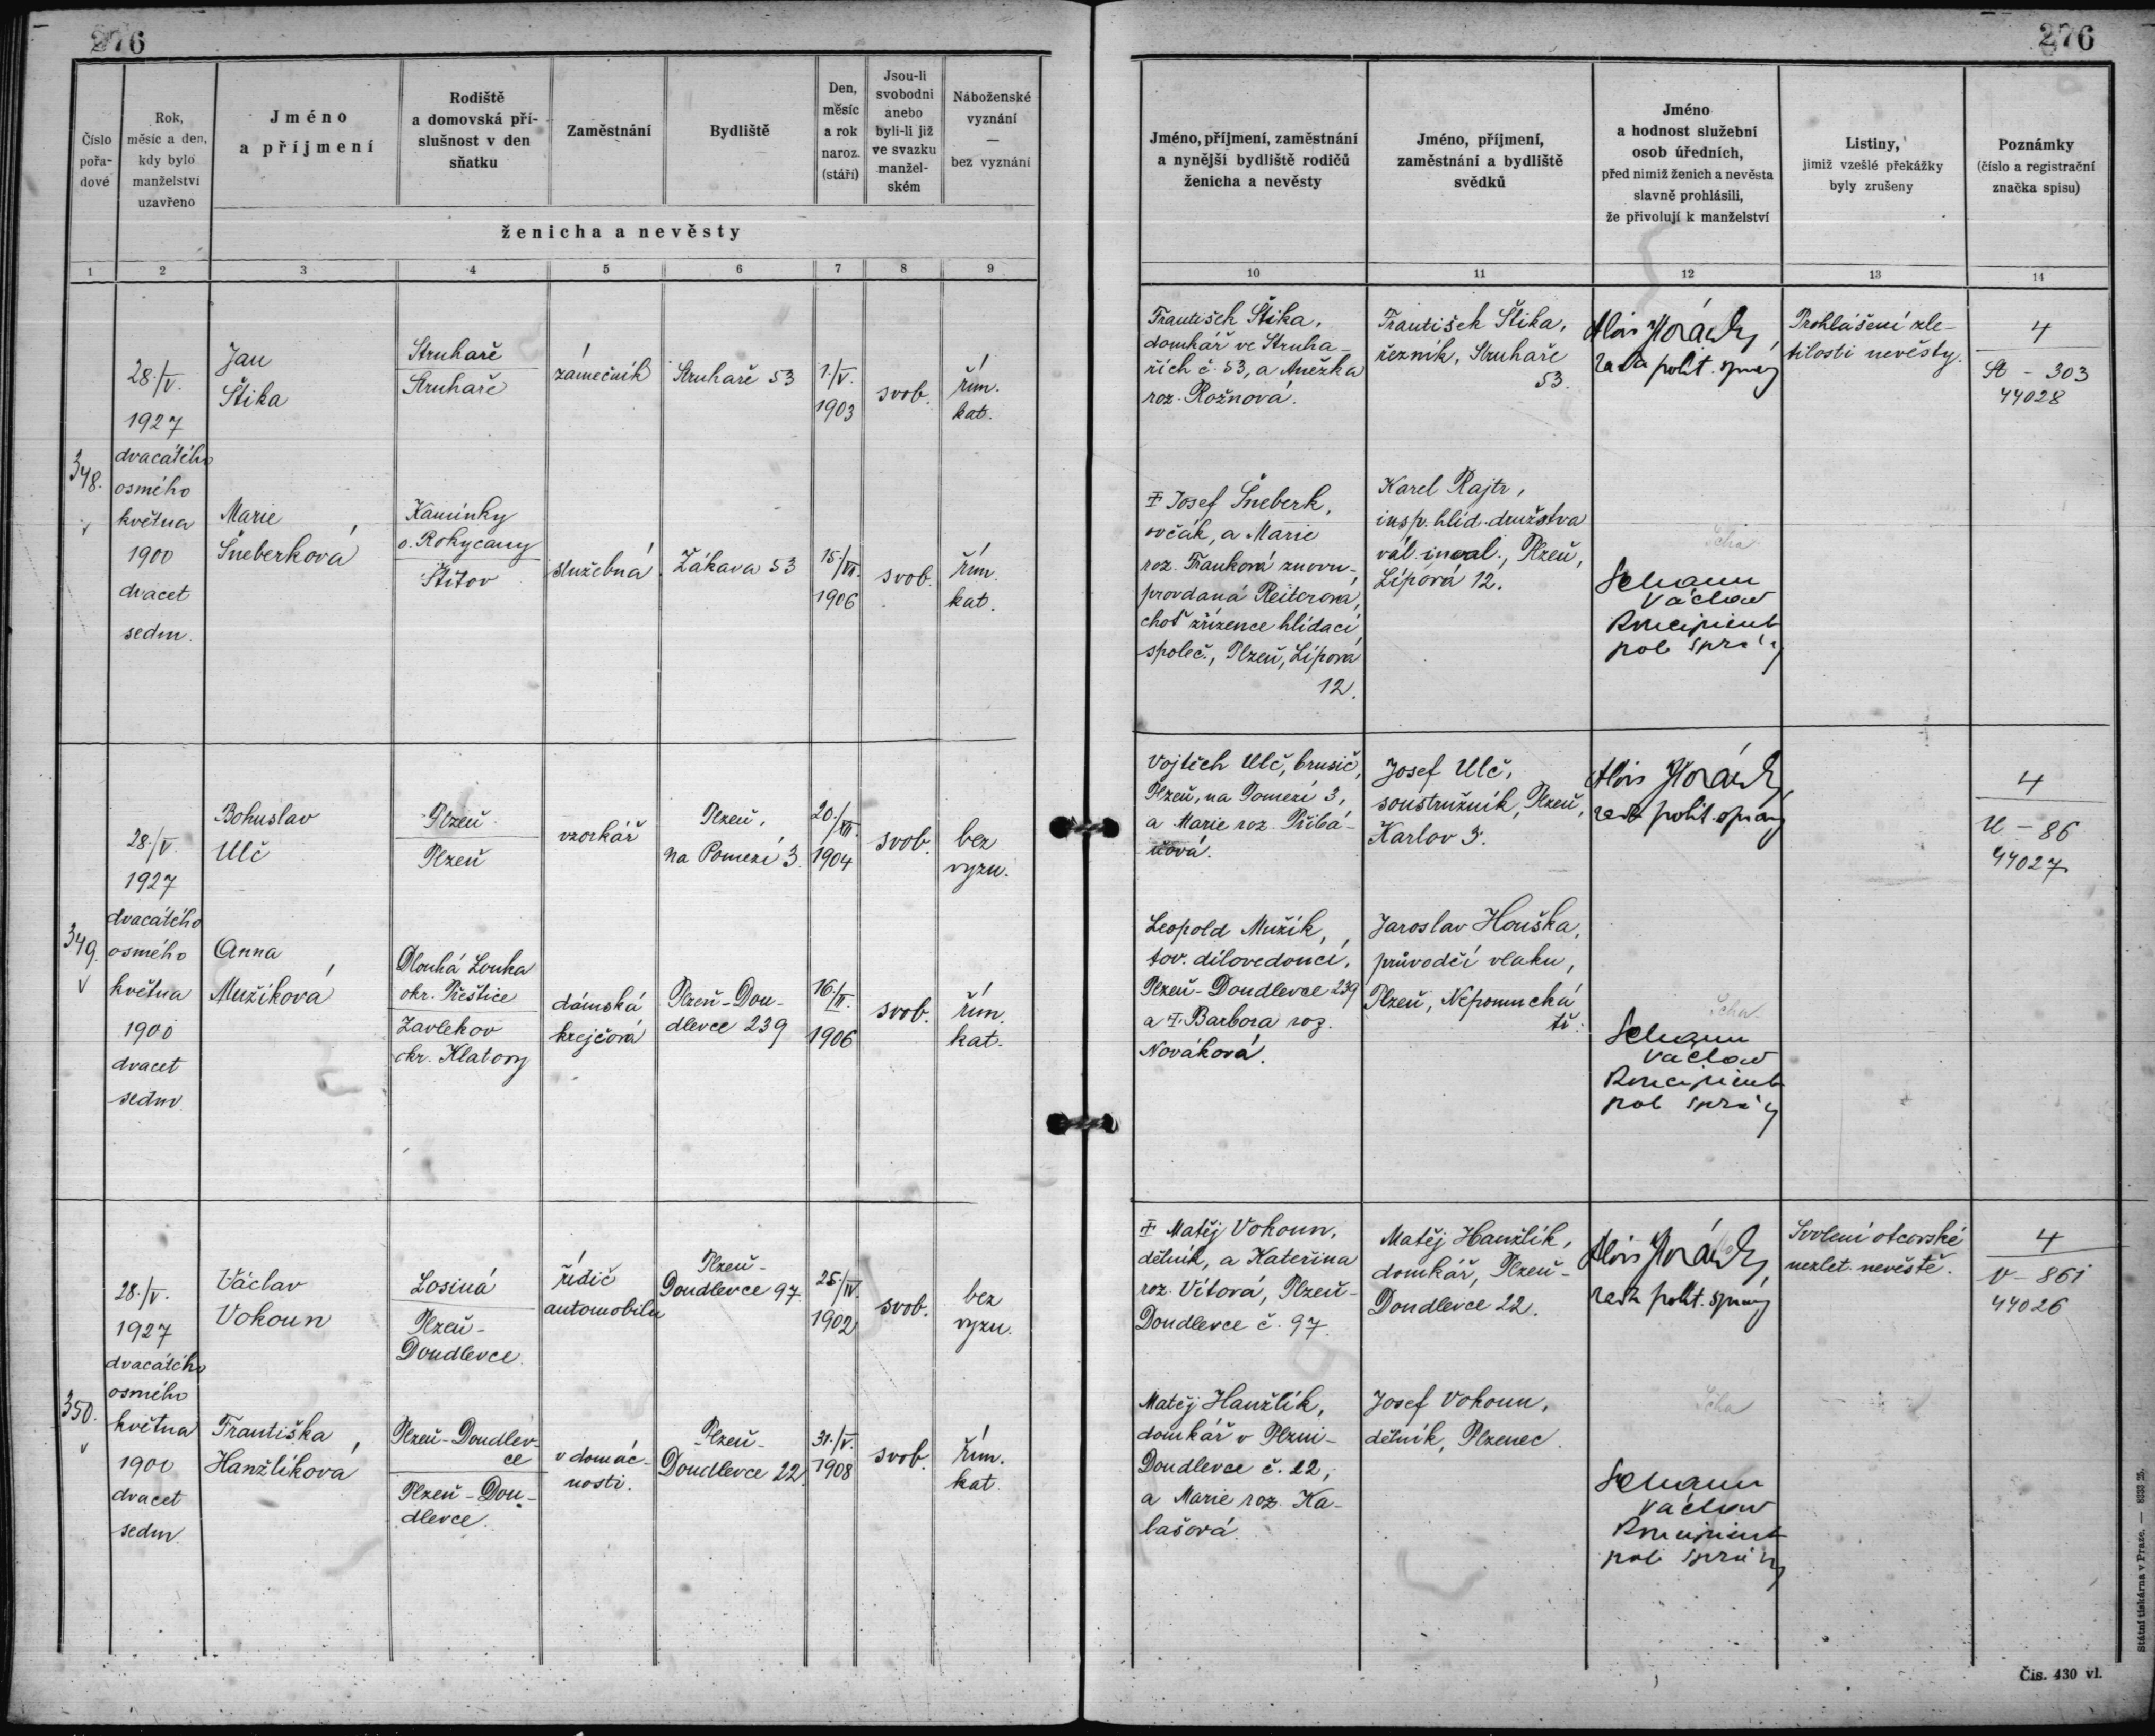 276
276
Číslo
pořa-
dové
Rok,
měsíc a den,
kdy bylo
manželství
uzavřeno
Jméno
a příjmení
Rodiště
a domovská pří-
slušnost v den
sňatku
Zaměstnání
Bydliště
Den,
měsíc
a rok
naroz.
(stáří)
Jsou-li
svobodni
anebo
byli-li již
ve svazku
manžel-
ském
Náboženské
vyznání
—
bez vyznání
ženicha a nevěsty
Jméno, příjmení, zaměstnání
a nynější bydliště rodičů
ženicha a nevěsty
Jméno, příjmení,
zaměstnání a bydliště
svědků
Jméno
a hodnost služební
osob úředních,
před nimiž ženich a nevěsta
slavně prohlásili,
že přivolují k manželství
Listiny,
jimiž vzešlé překážky
byly zrušeny
Poznámky
(číslo a registrační
značka spisu)
1 2 3 4 5 6 7 8 9 10 11 12 13 14
348.
28./V.
1927
dvacátého
osmého
května
1900
dvacet
sedm.
Jan
Štika
Struhaře
Struhaře
zámečník
Struhaře 53
1./V.
1903
svob.
řím.
kat.
František Štika,
domkář ve Struha-
řích č. 53, a Anežka
roz. Rožnová.
František Štika,
řezník, Struhaře
53.
Alois Horáček,
rada polit. správy
Prohlášení zle-
tilosti nevěsty.
4
St - 303
44028
Marie
Šneberková
Kamínky
o. Rokycany
Štítov
služebná
Žákava 53
15./VII.
1906
svob.
řím.
kat.
‡ Josef Šneberk,
ovčák, a Marie
roz. Franková znovu-
provdaná Reiterová,
choť zřízence hlídací
společ., Plzeň, Lípová
12.
Karel Rajtr,
insp. hlíd. družstva
vál. inval., Plzeň,
Lípová 12.
Scha
Schann
Václav
Koncipient
pol správy
349.
28./V.
1927
dvacátého
osmého
května
1900
dvacet
sedm.
Bohuslav
Ulč
Plzeň.
Plzeň
vzorkář
Plzeň,
na Pomezí 3.
20./XII.
1904
svob.
bez
vyzn.
Vojtěch Ulč, brusič,
Plzeň, na Pomezí 3,
a Marie roz. Přibá-
ňová.
Josef Ulč,
soustružník, Plzeň,
Karlov 3.
Alois Horáček,
rada polit. správy
4
U - 86
44027
Anna
Mužíková
Dlouhá Louka
okr. Přeštice
Zavlekov
okr. Klatovy
dámská
krejčová
Plzeň-Dou-
dlevce 239
16./II.
1906
svob.
řím.
kat.
Leopold Mužík,
tov. dílovedoucí,
Plzeň-Doudlevce 239
a ‡ Barbora roz.
Nováková.
Jaroslav Houška,
průvodčí vlaku,
Plzeň, Nepomucká
tř.
Scha
Schann
Václav
Koncipient
pol správy
350.
28./V.
1927
dvacátého
osmého
května
1900
dvacet
sedm.
Václav
Vokoun
Losiná
Plzeň-
Doudlevce.
řidič
automobilu
Plzeň-
Doudlevce 97.
25./IV.
1902
svob.
bez
vyzn.
‡ Matěj Vokoun,
dělník, a Kateřina
roz. Vítová, Plzeň-
Doudlevce č. 97.
Matěj Hanžlík,
domkář, Plzeň-
Doudlevce 22.
Alois Horáček,
rada polit. správy
Svolení otcovské
nezlet. nevěstě.
4
V - 861
44026
Františka
Hanžlíková
Plzeň-Doudlev-
ce
Plzeň-Dou-
dlevce.
v domác-
nosti.
Plzeň-
Doudlevce 22.
31./V.
1908
svob.
řím.
kat.
Matěj Hanžlík,
domkář v Plzni-
Doudlevce č. 22,
a Marie roz. Ka-
lašová.
Josef Vokoun,
dělník, Plzenec.
Scha
Schann
Václav
Koncipient
pol správy
Státní tiskárna v Praze. — 8333 25.
Čís. 430 vl.